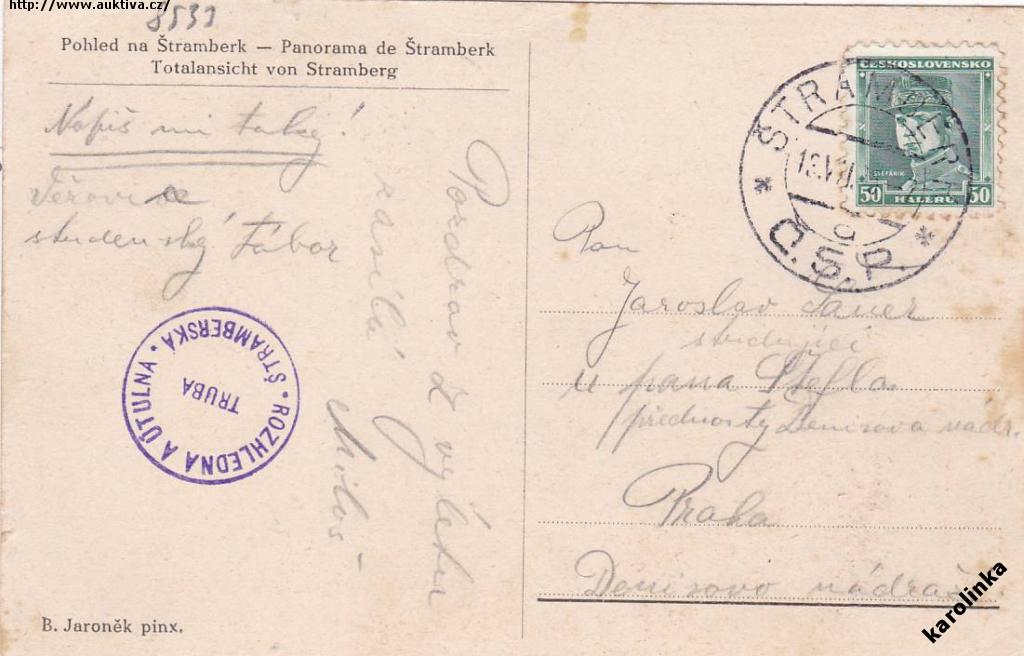 http://www.auktiva.cz/
8533
Pohled na Štramberk — Panorama de Štramberk
Totalansicht von Stramberg
Napiš mi taky!
Věřovice
studenský tábor
Pozdrav z výletu
zasílá
Miloš
ROZHLEDNA A ÚTULNA • ŠTRAMBERSKÁ •
TRUBA
B. Jaroněk pinx.
ČESKOSLOVENSKO
ŠTEFÁNIK
50 HALÉŘŮ 50
ŠTRAMBERK
Č.S.R.
Pan
Jaroslav
studující
u pana Stella
přednosty Denisova nádr.
Praha
Denisovo nádraž
karolinka